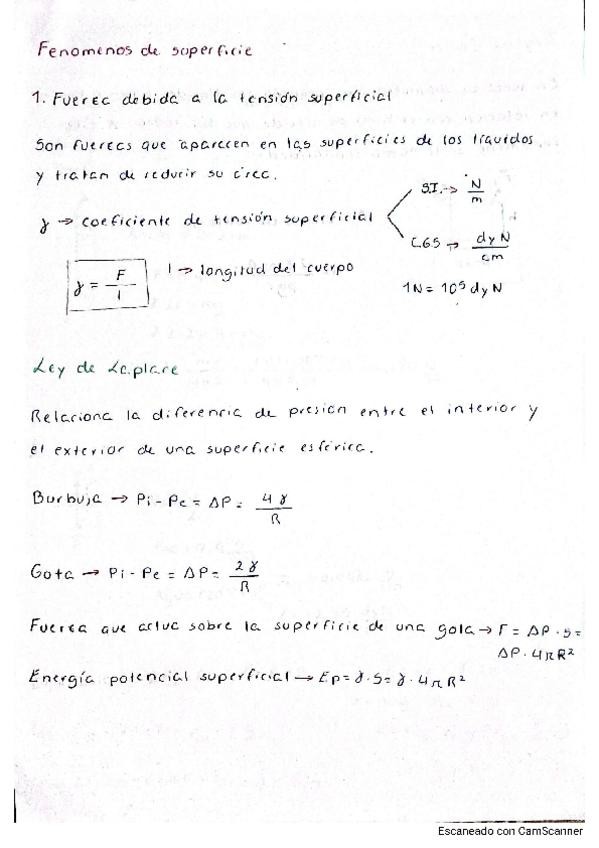 Fenomenos de superficie
1. Fuerza debida a la tensión superficial
Son fuerzas que aparecen en las superficies de los líquidos
y tratan de reducir su área.
γ → coeficiente de tensión superficial
S.I. → N/m
C.G.S → dyN/cm
γ = F/l
l → longitud del cuerpo
1N = 10⁵ dyN
Ley de Laplace
Relaciona la diferencia de presión entre el interior y
el exterior de una superficie esférica.
Burbuja → Pi - Pe = ΔP = 4γ/R
Gota → Pi - Pe = ΔP = 2γ/R
Fuerza que actua sobre la superficie de una gota → F = ΔP · S =
ΔP · 4πR²
Energía potencial superficial → Ep = γ · S = γ · 4πR²
Escaneado con CamScanner